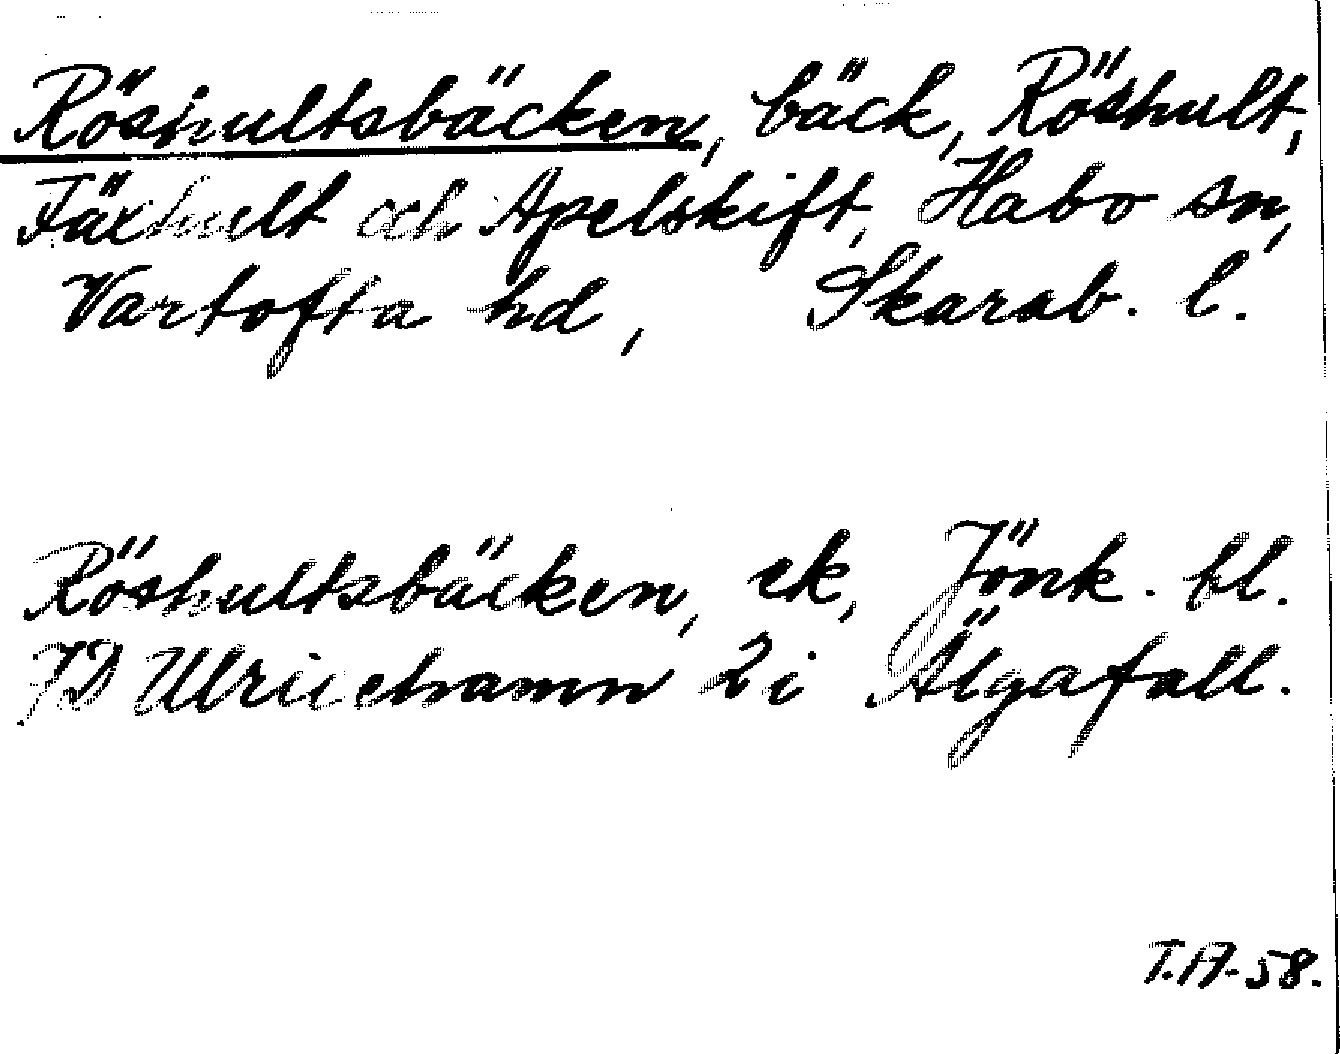 Röshultsbäcken, bäck, Röshult,
Fäxhult och Apelskift, Habo sn,
Vartofta hd, Skarab. l.
Röshultsbäcken, ek, Jönk. bl.
7D Ulricehamn 2i Älgafall.
T.A-58.